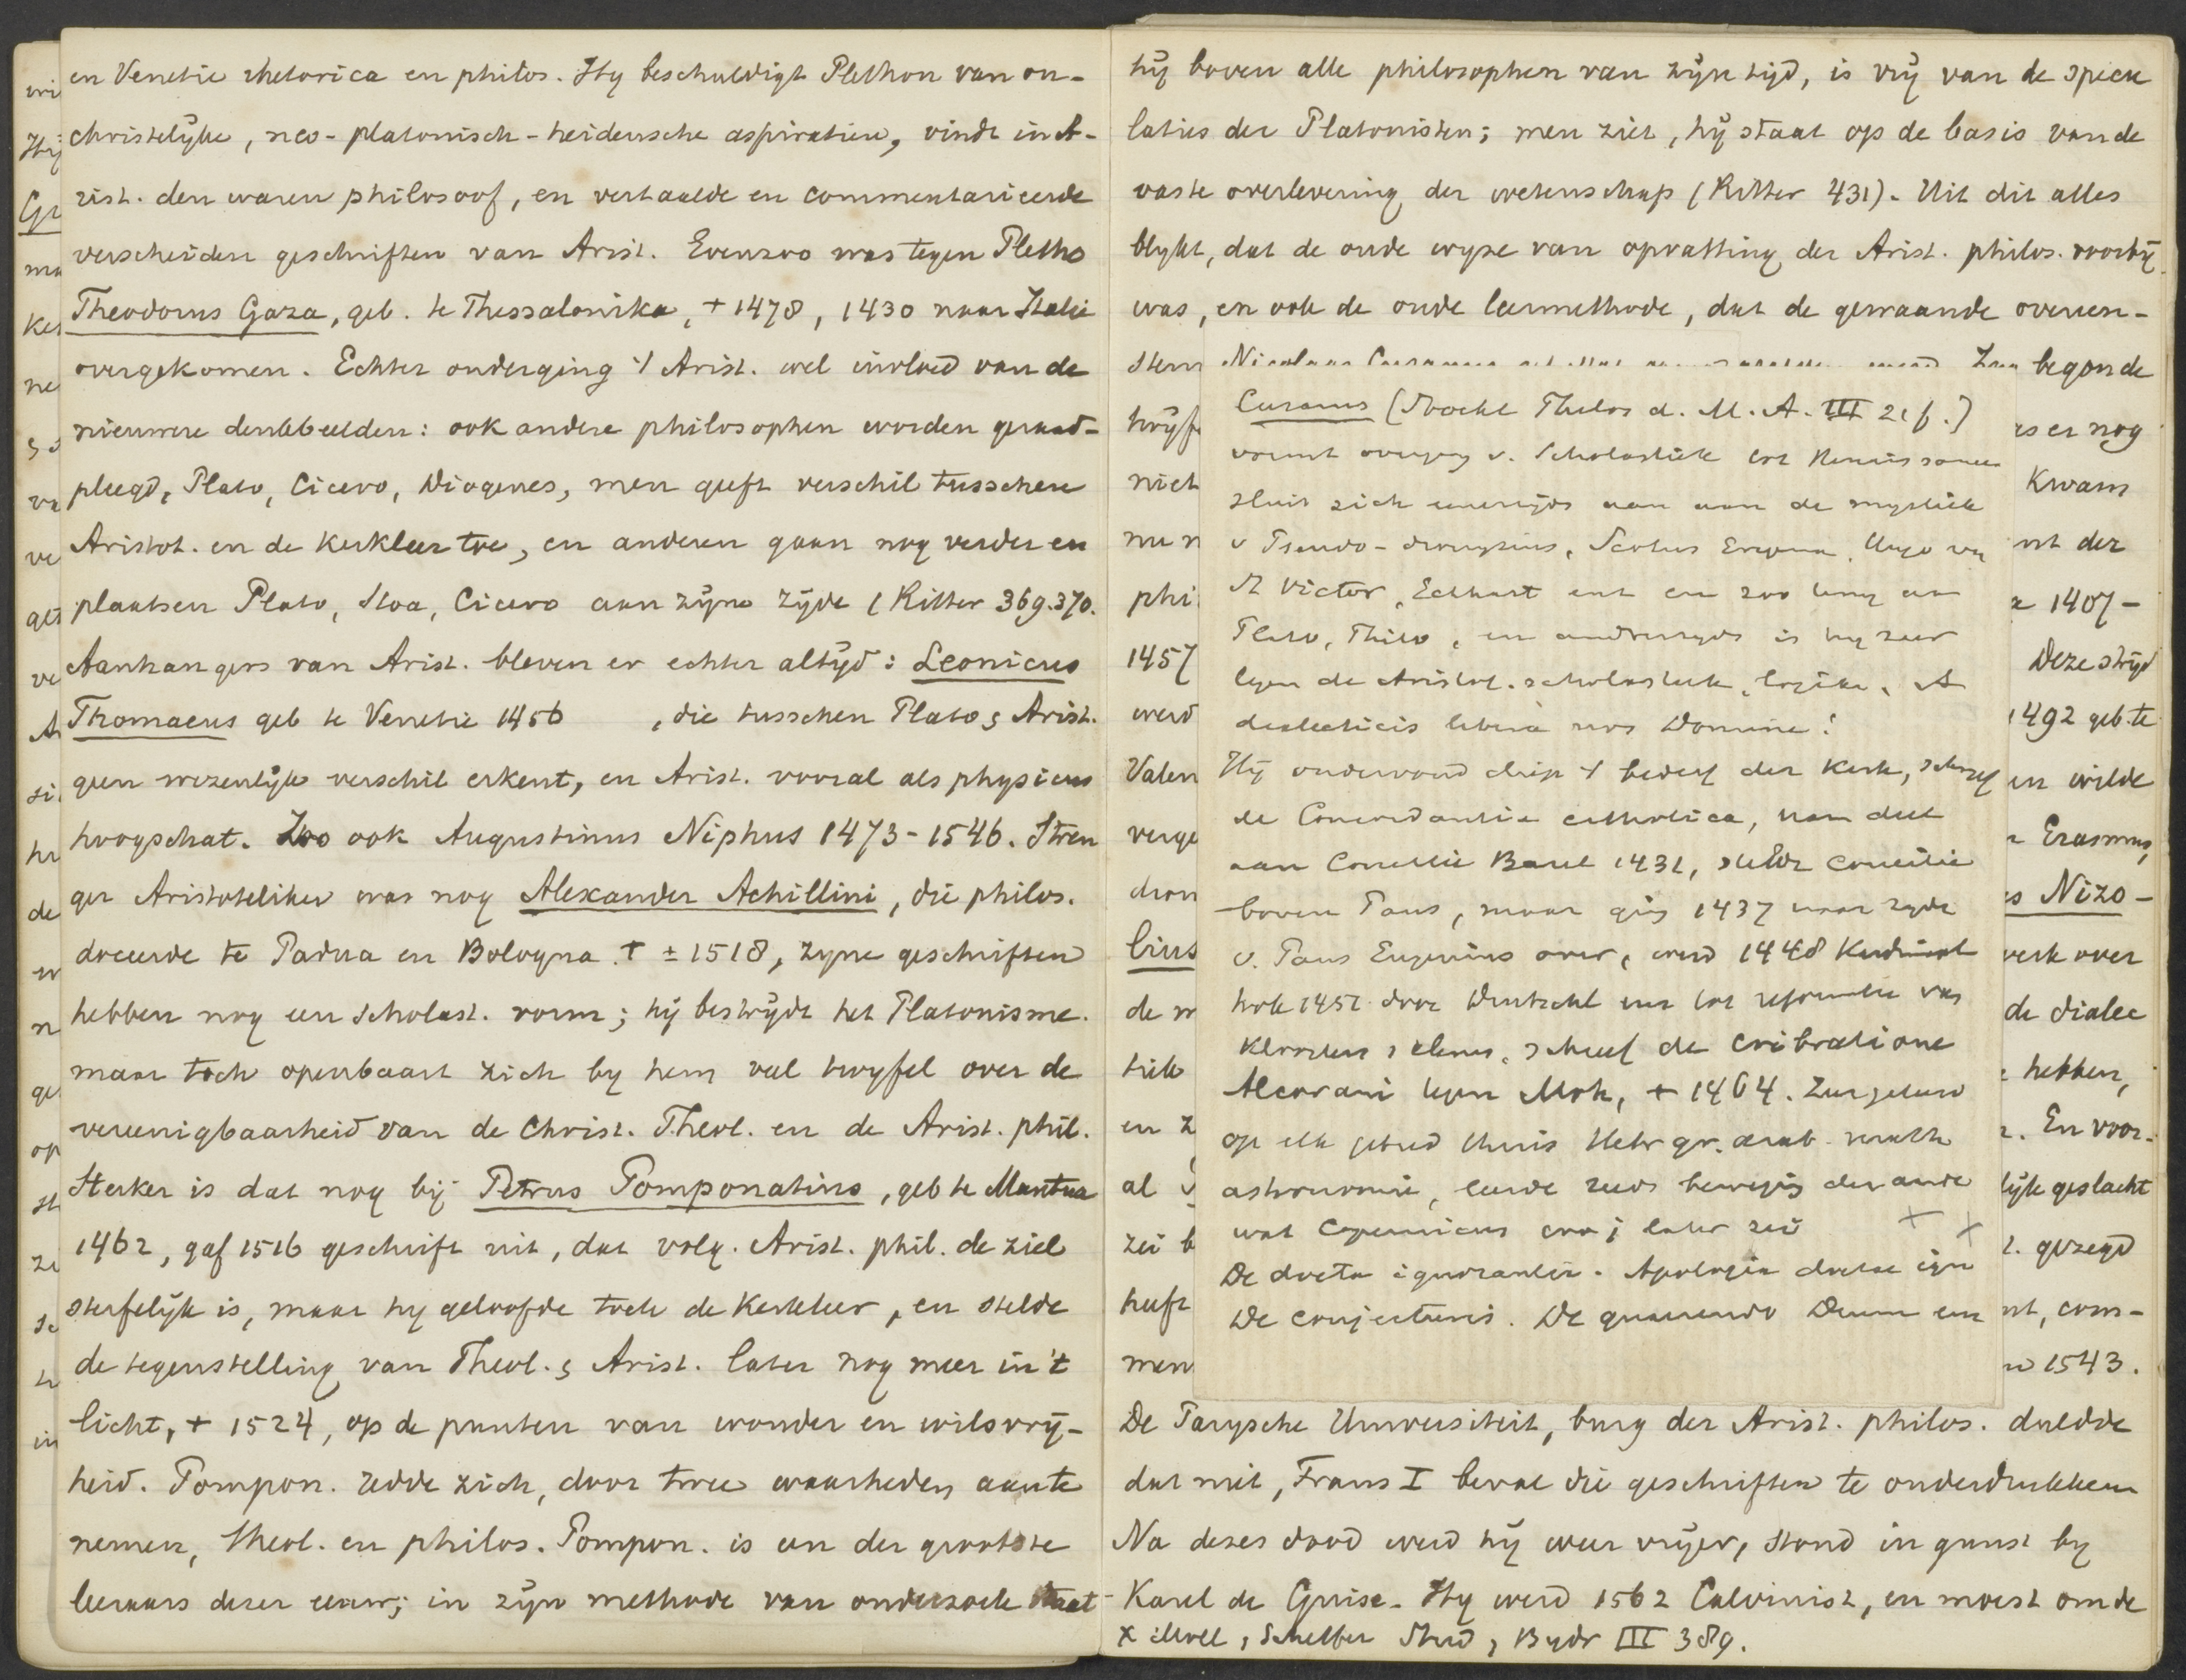 en Venetie rhetorica en philos. Hy beschuldigt Plethon van on-
christelyke, neo-platonisch-heidensche aspiratien, vindt in A-
rist. den waren philosoof, en vertaalde en commentarieerde
verscheiden geschriften van Arist. Evenzoo was tegen Pletho
Theodorus Gaza, geb. te Thessalonika, + 1478, 1430 naar Italie
overgekomen. Echter onderging 't Arist. wel invloed van de
nieuwere denkbeelden: ook andere philosophen worden geraad-
pleegd, Plato, Cicero, Diogenes, men geeft verschil tusschen
Aristot. en de kerkleer toe, en anderen gaan nog verder en
plaatsen Plato, Stoa, Cicero aan zyne zyde (Ritter 369.370.
Aanhangers van Arist. bleven er echter altyd: Leonicus
Thomaeus geb te Venetie 1456 , die tusschen Plato & Arist.
geen wezenlijk verschil erkent, en Arist. vooral als physicus
hoogschat. Zoo ook Augustinus Niphus 1473-1546. Stren
ger Aristoteliker was nog Alexander Achillini, die philos.
doceerde te Padua en Bologna. + ± 1518, zyne geschriften
hebben nog een scholast. vorm; hij bestrydt het Platonisme.
maar toch openbaart zich by hem veel twyfel over de
vereenigbaarheid van de Christ. Theol. en de Arist. phil.
Sterker is dat nog bij Petrus Pomponatius, geb te Mantua
1462, gaf 1516 geschrift uit, dat volg. Arist. phil. de ziel
sterfelijk is, maar hy geloofde toch de Kerkleer, en stelde
de tegenstelling van Theol. & Arist. later nog meer in 't
licht, + 1524, op de punten van wonder en wilsvry-
heid. Pompon. redde zich, door twee waarheden aan te
nemen, theol. en philos. Pompon. is een der grootste
leeraars dezer eeuw; in zyn methode van onderzoek staat
hij boven alle philosophen van zyn tijd, is vry van de specu
laties der Platonisten; men ziet, hij staat op de basis van de
vaste overlevering der wetenschap (Ritter 431). Uit dit alles
blykt, dat de oude wyze van opvatting der Arist. philos. voorbij
was, en ook de oude leermethode, dat de gewaande overeen-
stem
begon de
Cusanus (Stockl Philos d. M. A. III 21 f.)
vormt overgang v. Scholastiek tot Renaissance
sluit zich eenerzijds aan aan de mystiek
v Pseudo-dionysius, Scotus Erigena, Hugo v
St Victor, Eckhart ent en zoo
Plato, Philo, en anderzyds is hy zeer
tegen de Aristot. scholastiek, logika, A
dialecticis libera nos Domine!
Hij ondervond diep 't bederf der kerk, schreef
de Concordantia catholica, nam deel
aan Concilie Bazel 1431, stelde concilie
boven Paus, maar ging 1437 naar zyde
v. Paus Eugenius over, werd 1448 Kardinaal
trok 1451 door Duitschl om tot reformatie van
kloosters & clerus, schreef de cribratione
Alcorani tegen Moh, + 1464. Zeer geleerd
op elk gebied thuis Hebr gr. arab.
astronomie, leerde reeds beweging der aarde
wat Copernicus eraf later zei
De docta ignorantia. Apologia doctae ign
De conjecturis. De quaerendo Deum enz
twyf
es er nog
niet
kwam
nu n
nt der
phi
1407-
1457
Deze stryd
werd
1492 geb. te
Valen
en wilde
verge
Erasmus,
dron
s Nizo-
lius
werk over
de
de dialec
tiek
hebben,
en z
En voor-
al
lijk geslacht
zei b
gezegd
heeft
nt, com-
men
1543.
De Parysche Universiteit, burg der Arist. philos. duldde
dat niet, Frans I beval die geschriften te onderdrukken
Na dezes dood werd hij weer vrijer, stond in gunst by
Karel de Guise. Hy werd 1562 Calvinist, en moest om de
x Moll, Scheffer Stud, Bydr III 389.